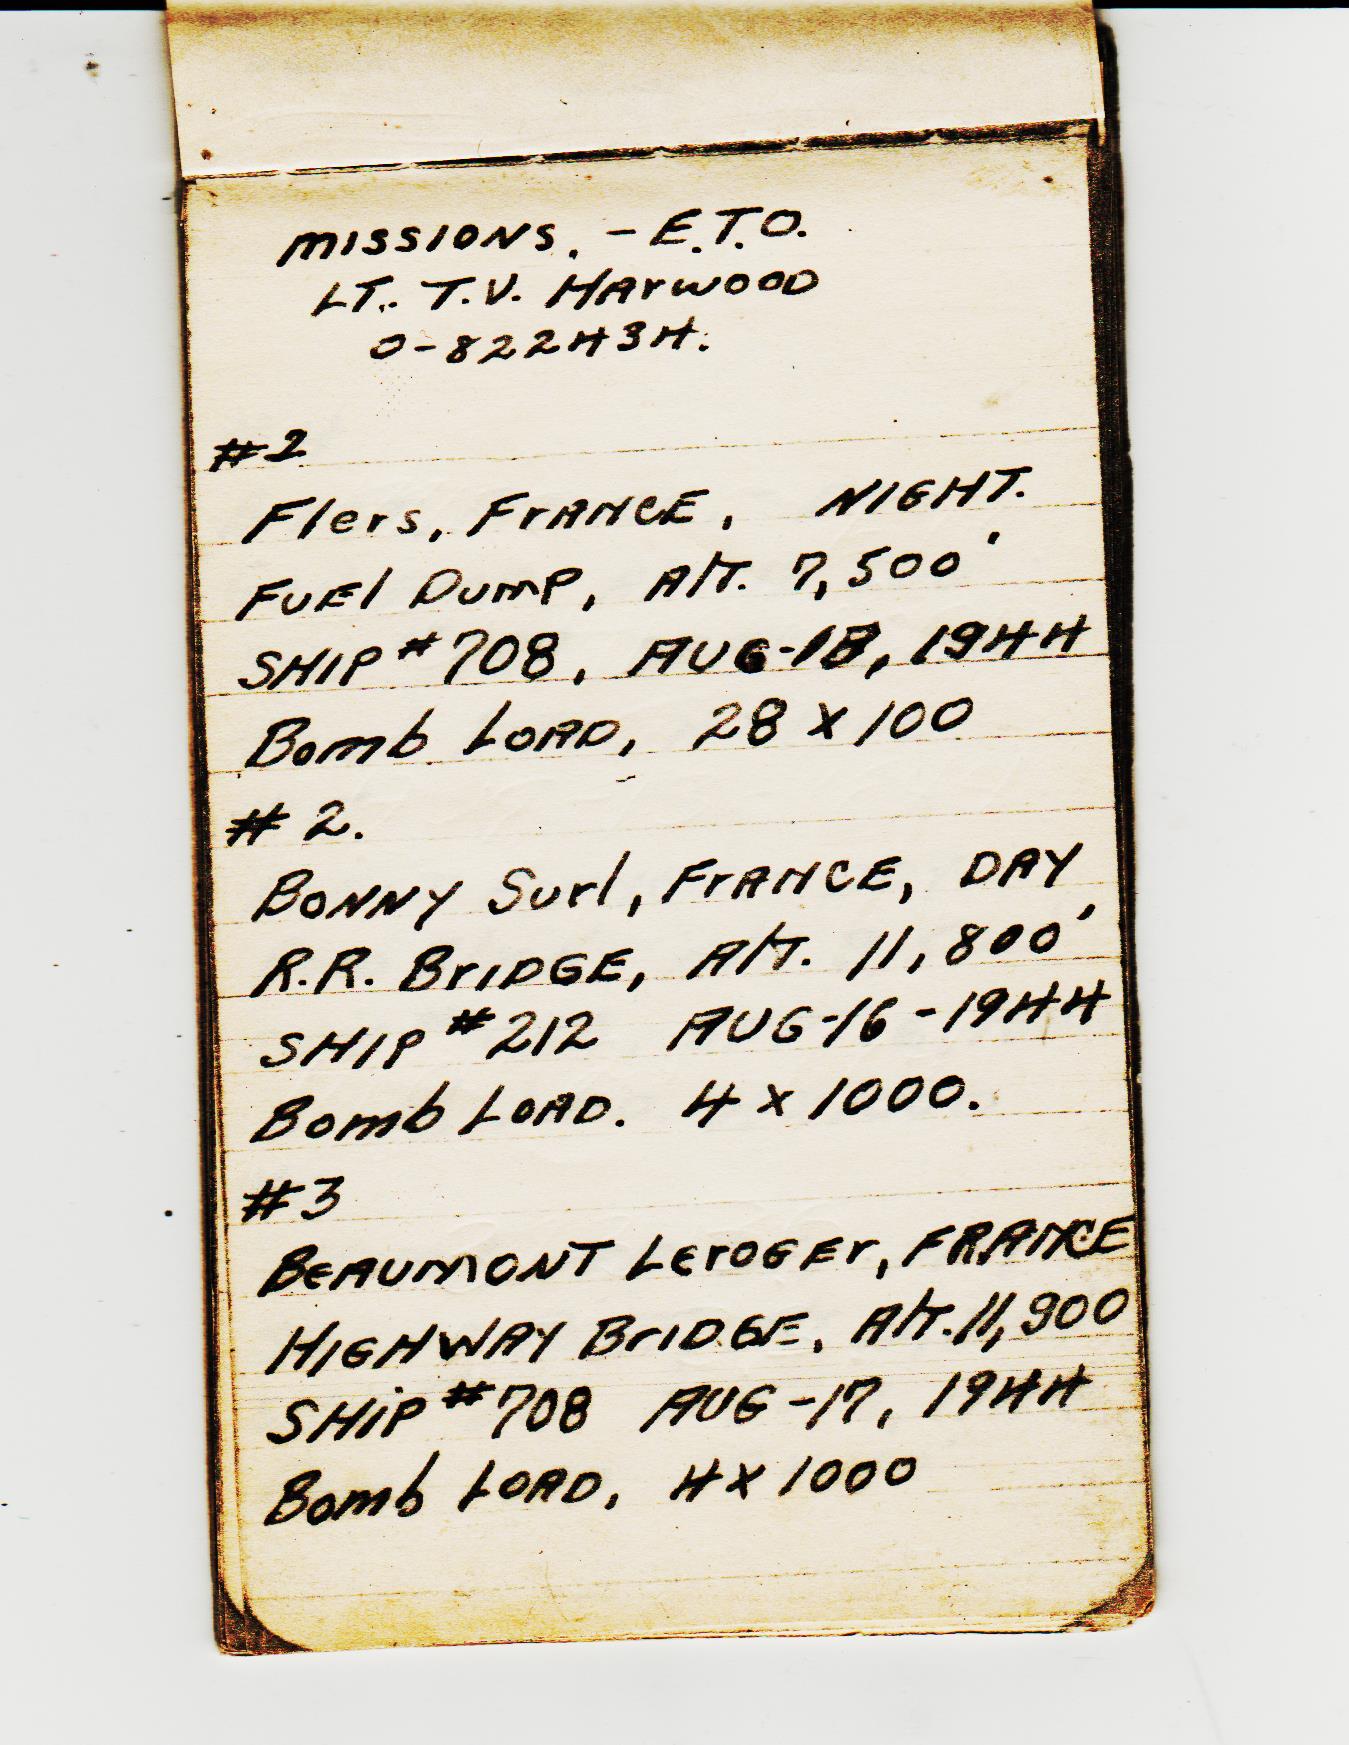 MISSIONS. - E.T.O.
LT. T.V. HARWOOD
O-822434.
#2
Flers, FRANCE, NIGHT.
FUEL DUMP, Alt. 7,500'
SHIP #708, AUG-18, 1944
Bomb LOAD, 28 x 100
#2.
BONNY Surl, FRANCE, DAY
R.R. BRIDGE, Alt. 11,800'
SHIP #212 AUG-16-1944
Bomb LOAD. 4 x 1000.
#3
BEAUMONT LeroGEr, FRANCE
HIGHWAY BRIDGE, Alt. 11,900
SHIP #708 AUG-17, 1944
Bomb LOAD, 4 x 1000